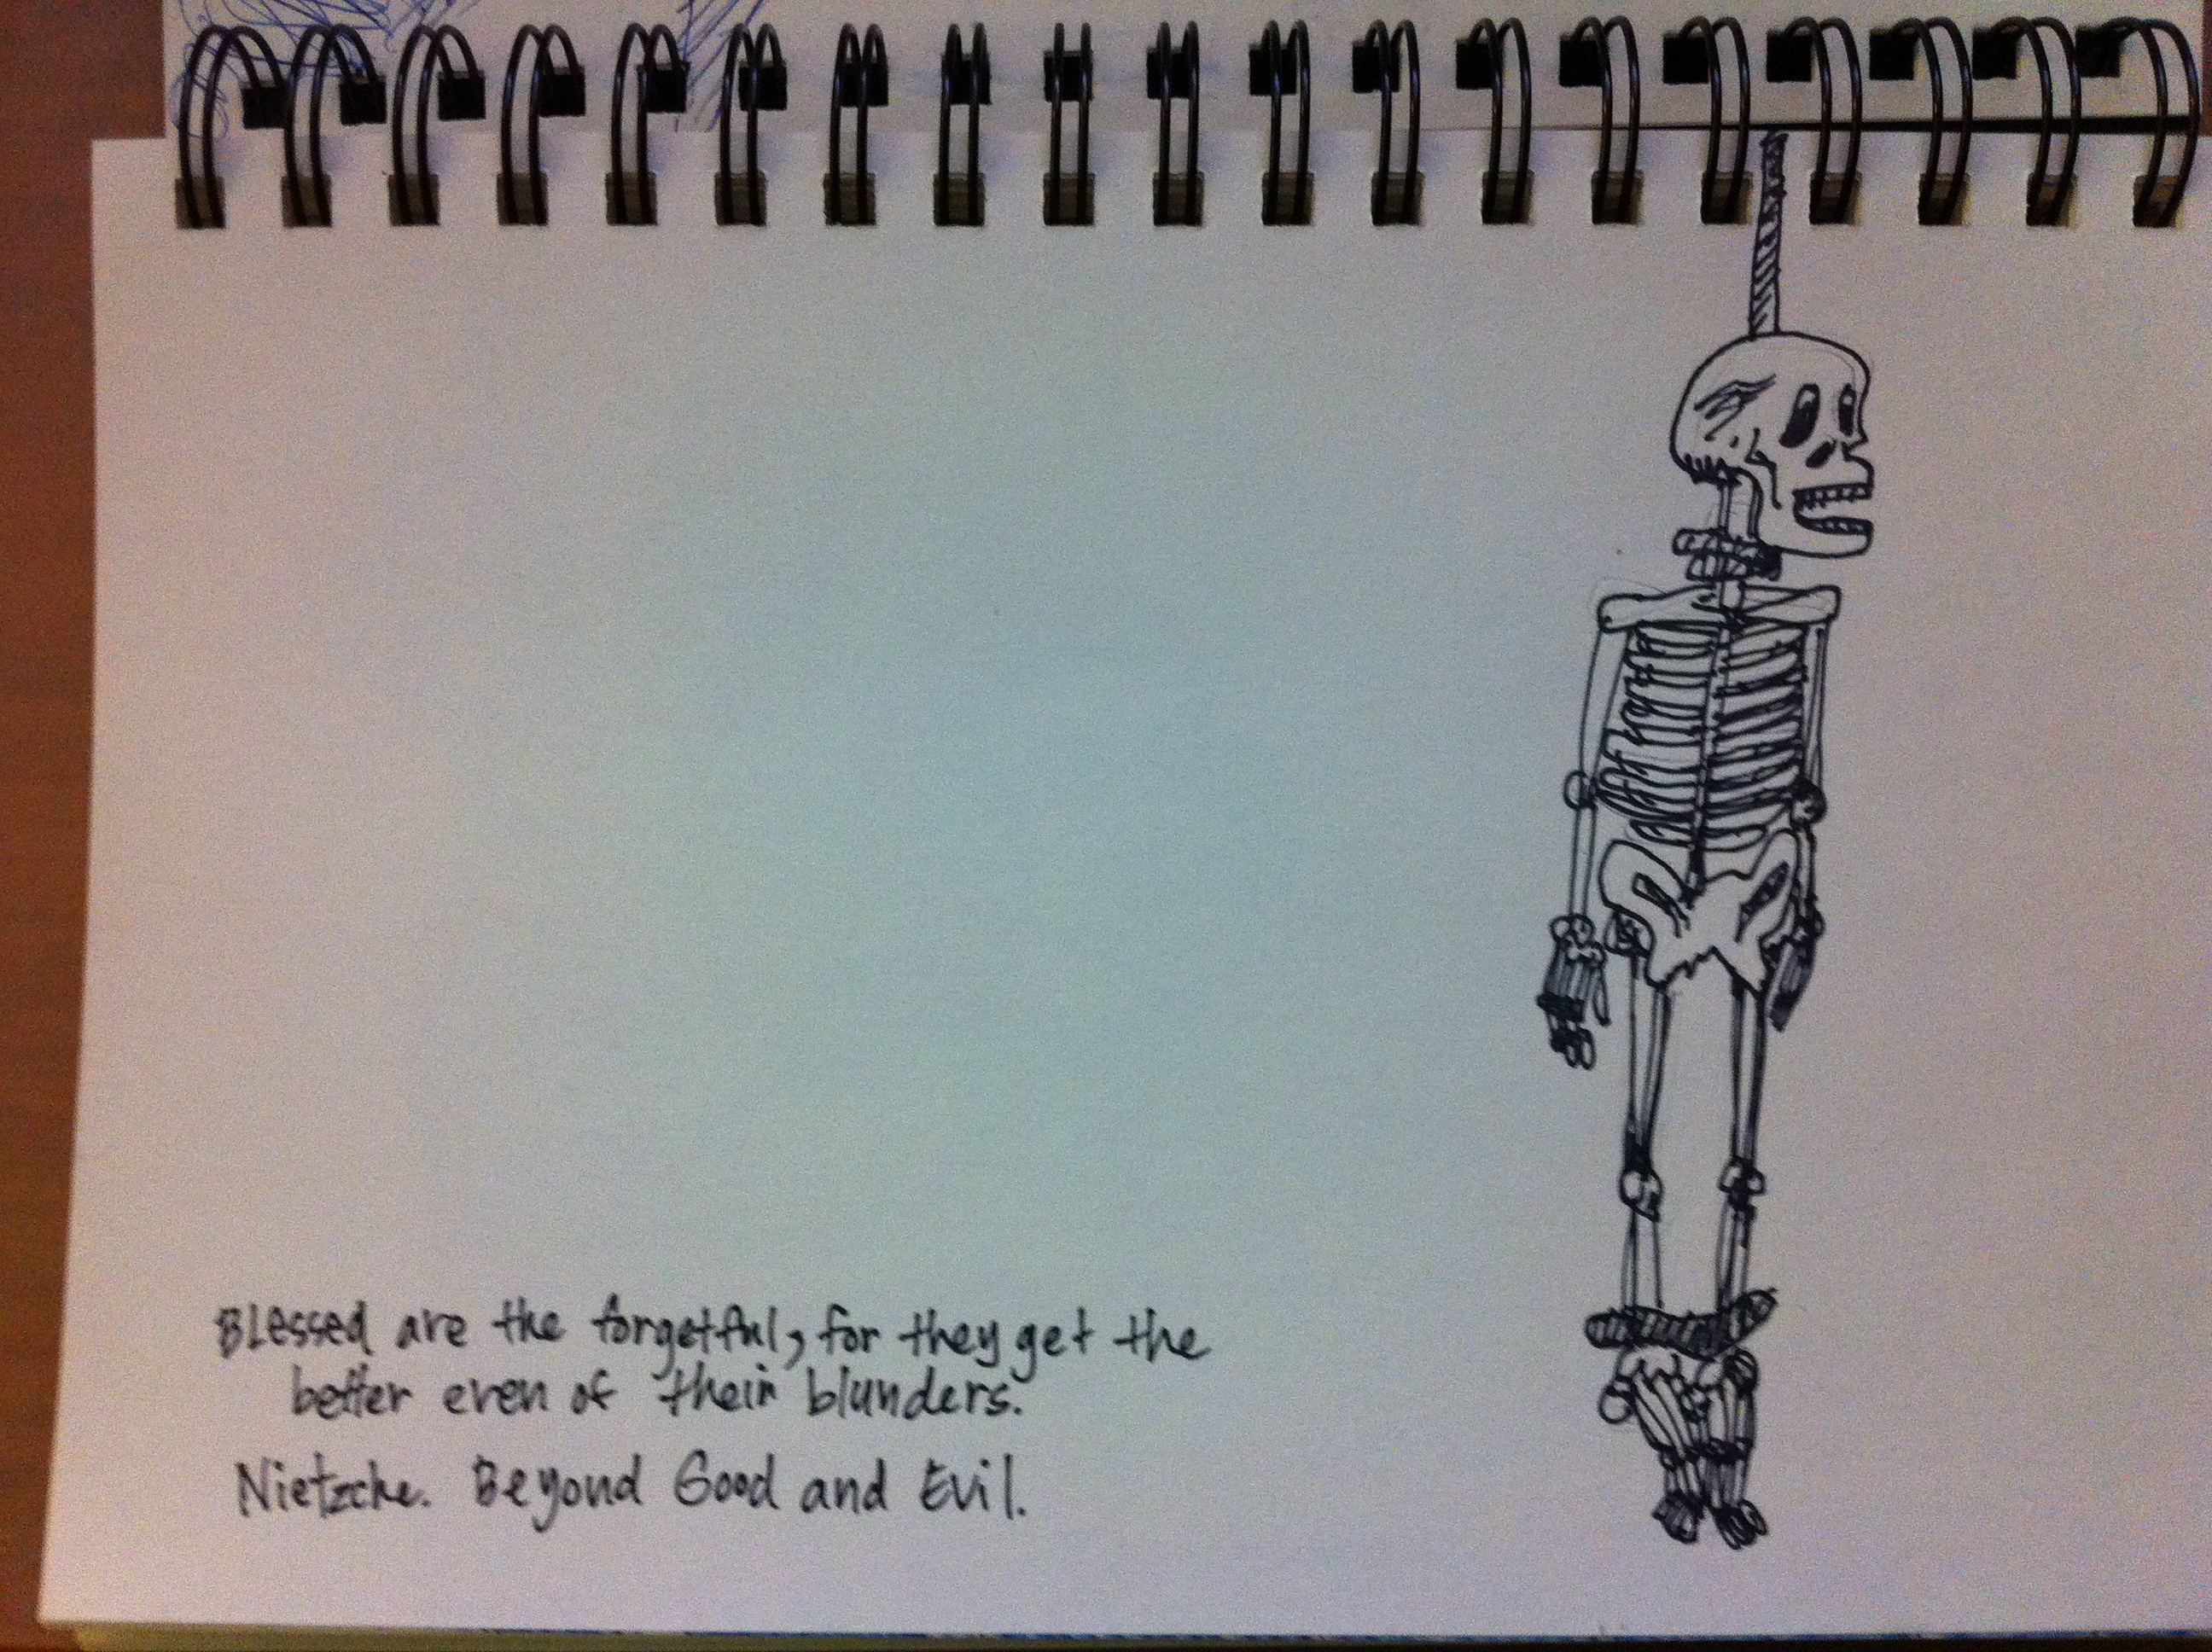 Blessed are the forgetful, for they get the
better even of their blunders.
Nietzche. Beyond Good and Evil.